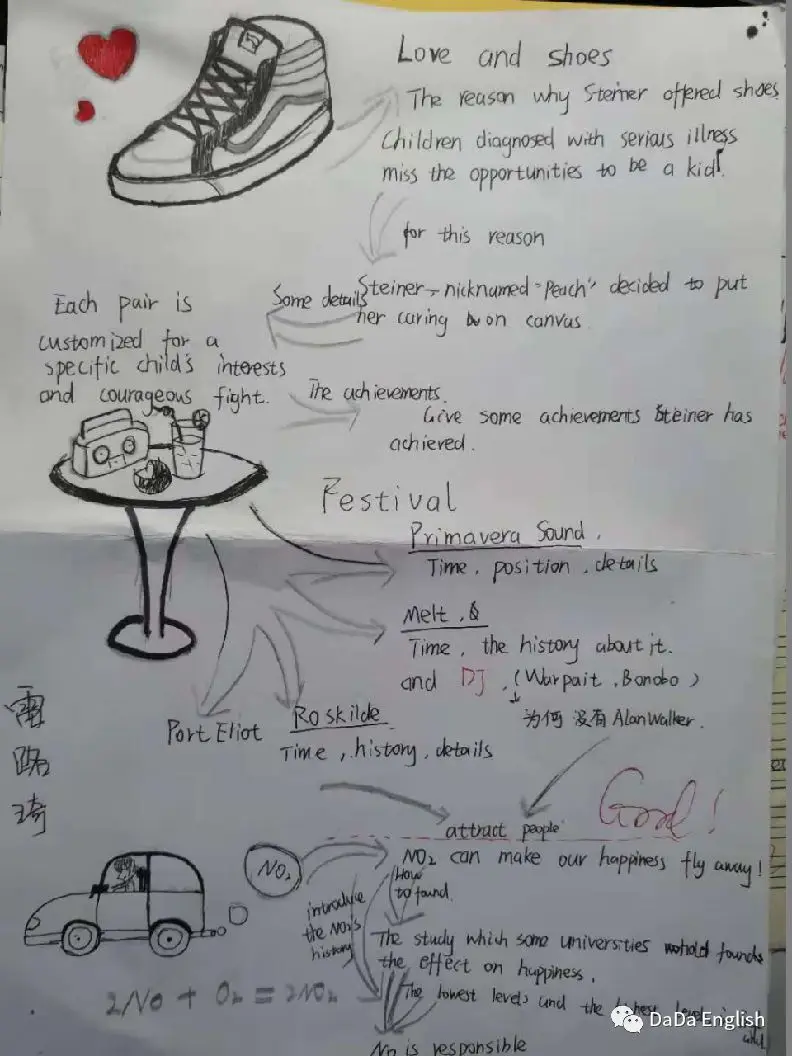 Love and shoes
The reason why Steiner offered shoes
Children diagnosed with serious illness
miss the opportunities to be a kid.
for this reason
Some details
Steiner, nicknamed "Peach" decided to put
her caring on canvas.
Each pair is
customized for a
specific child's interests
and courageous fight.
The achievements.
Give some achievements Steiner has
achieved.
Festival
Primavera Sound.
Time, position, details
Melt, &
Time, the history about it.
and DJ, (Warpait, Bonobo)
为何没有 Alan Walker.
Port Eliot
Roskilde
Time, history, details
雷
璐
琦
Good!
attract people
NO₂
NO₂ can make our happiness fly away!
How
to found.
introduce
the NO₂'s
history
The study which some universities found
the effect on happiness.
The lowest levels and the highest level
2NO + O₂ = 2NO₂
NO₂ is responsible
DaDa English